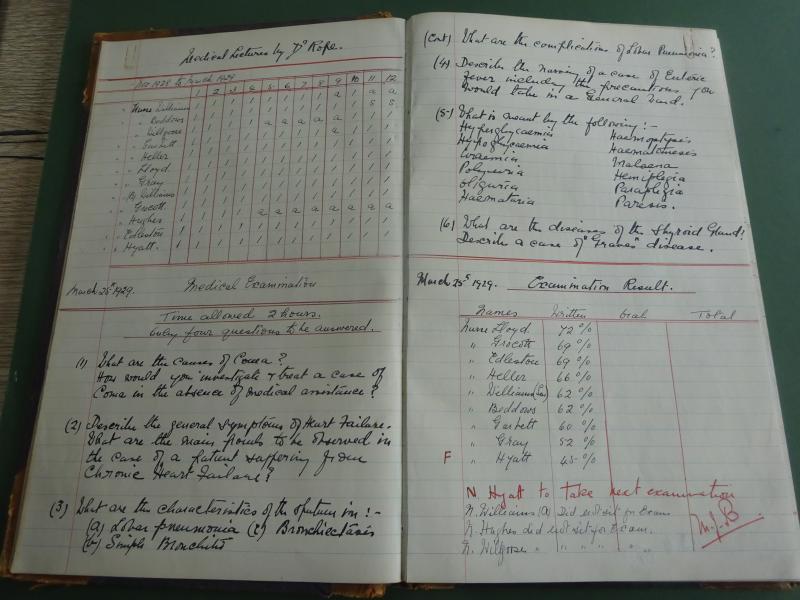 Medical Lectures by Dr Rope.
Nov 1928 to March 1929
1 2 3 4 5 6 7 8 9 10 11 12
Nurse Williams
" Beddows
" Wilgoose
" Garbett
" Heller
" Lloyd
" Gray
" B. Williams
" Grocott
" Hughes
" Edleston
" Hyatt.
March 25th 1929. Medical Examination
Time allowed 2 hours.
Only four questions to be answered.
(1) What are the causes of Coma?
How would you investigate & treat a case of
Coma in the absence of medical assistance?
(2) Describe the general symptoms of Heart Failure.
What are the main points to be observed in
the case of a patient suffering from
Chronic Heart Failure?
(3) What are the characteristics of the sputum in :-
(a) Lobar pneumonia (c) Bronchiectasis
(b) Simple Bronchitis
(Cont) What are the complications of Lobar Pneumonia?
(4) Describe the nursing of a case of Enteric
Fever including the precautions you
would take in a General Ward.
(5) What is meant by the following :-
Hyperglycaemia Haemoptysis
Hypoglycaemia Haematemesis
Uraemia Malaena
Polyuria Hemiplegia
Oliguria Paraplegia
Haematuria Paresis.
(6) What are the diseases of the Thyroid Gland?
Describe a case of "Graves" disease.
March 25th 1929. Examination Result.
Names Written Oral Total
Nurse Lloyd 72%
" Grocott 69%
" Edleston 69%
" Heller 66%
" Williams 62%
" Beddows 62%
" Garbett 60%
" Gray 52%
F " Hyatt 45%
N. Hyatt to take next examination
N. Williams did not sit for Exam.
N. Hughes did not sit for Exam.
N. Wilgoose " " " " "
M.J.B.